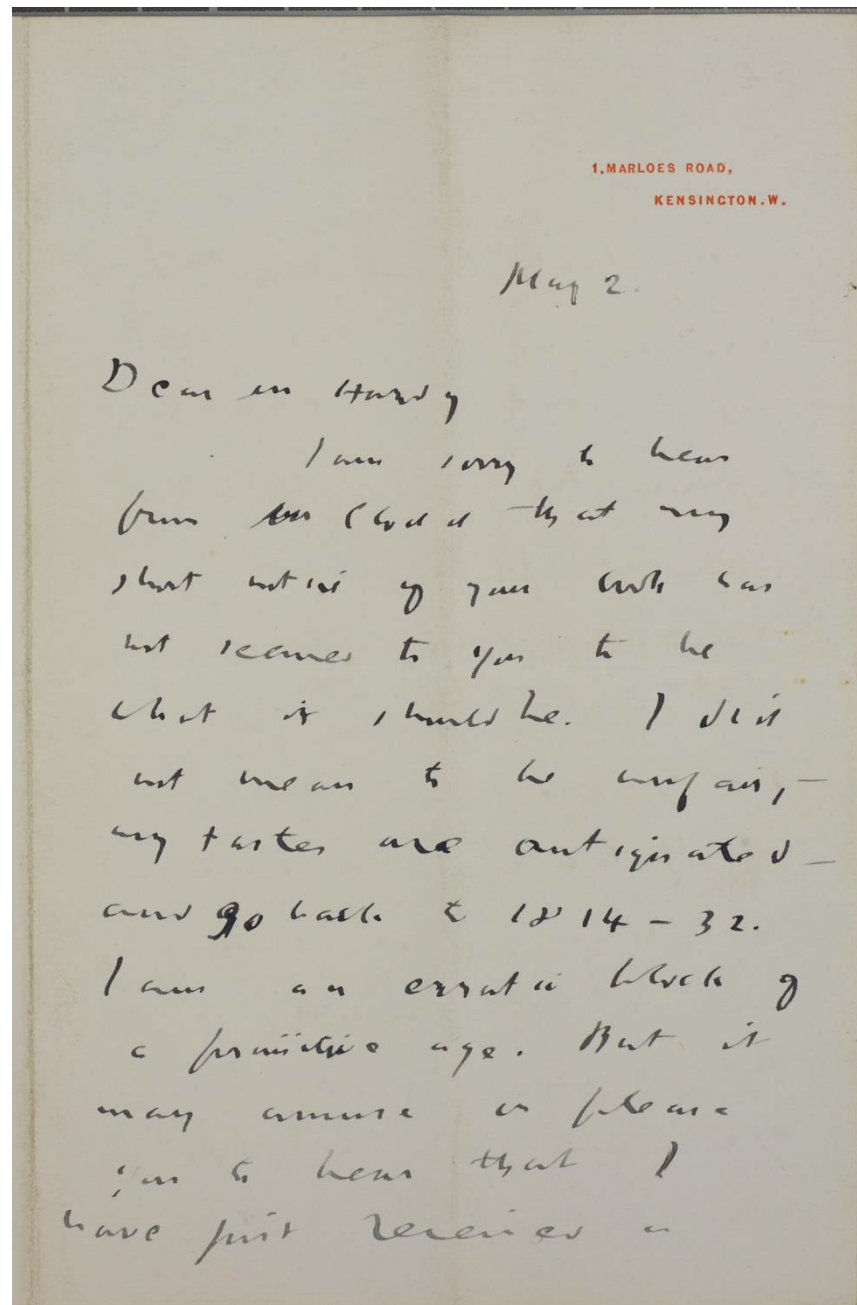 1. MARLOES ROAD,
KENSINGTON. W.
May 2.
Dear Mr Hardy
I am sorry to hear
from Mr Clodd that my
short notice of your book has
not seemed to you to be
what it should be. I did
not mean to be unfair, —
my tastes are antiquated —
and go back to 1814 – 32.
I am an erratic block of
a primitive age. But it
may amuse or please
you to hear that I
have just received a